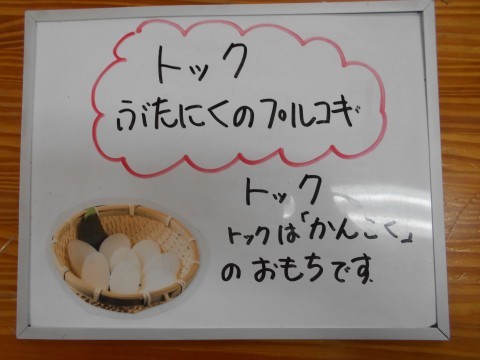 トック
ぶたにくのプルコギ
トック
トックは「かんこく」
のおもちです